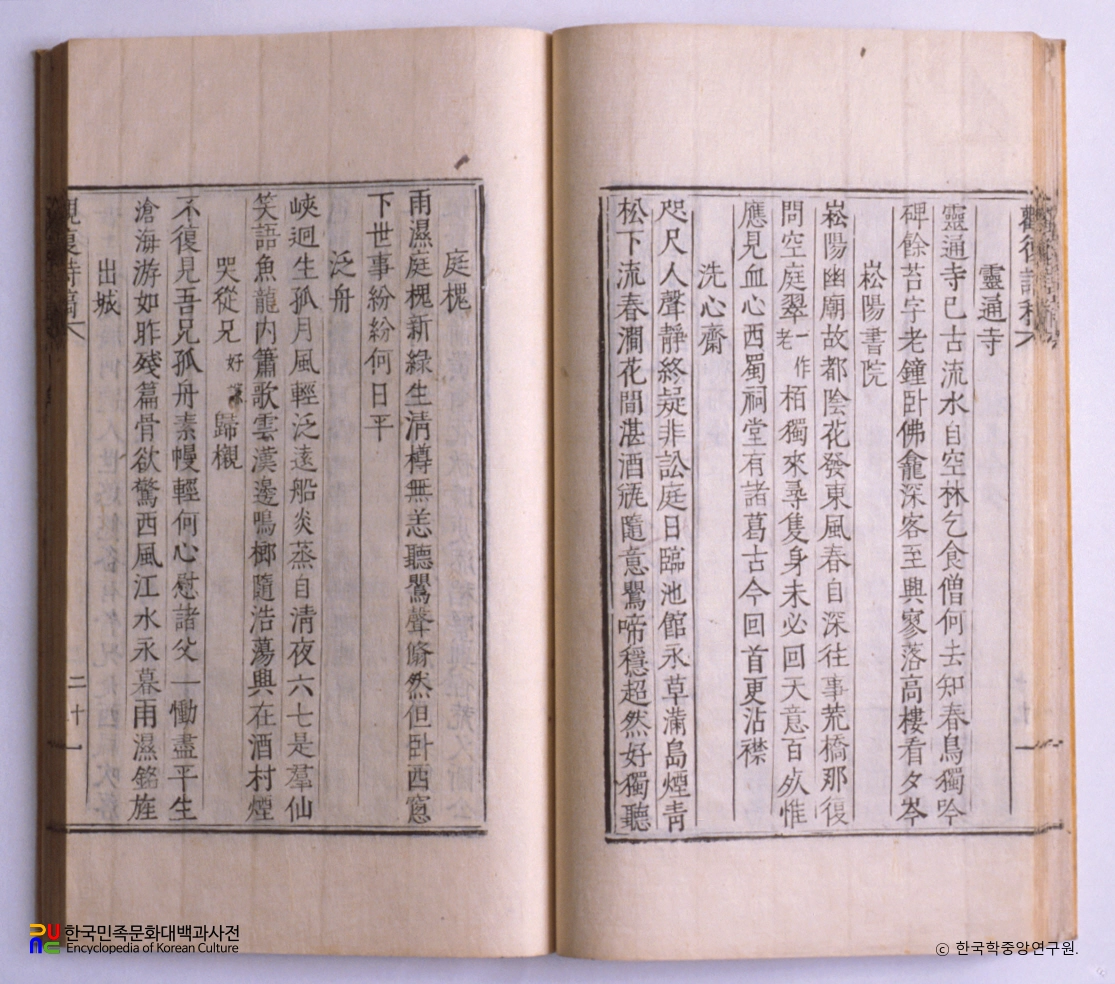 觀復詩稿
靈通寺
靈通寺已古流水自空林乞食僧何去知春鳥獨吟
碑餘苔字老鐘卧佛龕深客至興寥落高樓看夕岑
崧陽書院
崧陽幽廟故都陰花發東風春自深往事荒橋那復
問空庭翠一作老栢獨來尋隻身未必回天意百歲惟
應見血心西蜀祠堂有諸葛古今回首更沾襟
洗心齋
咫尺人聲靜終疑非訟庭日臨池館永草滿島煙靑
松下流春澗花間湛酒甁隨意鸎啼穩超然好獨聽
庭槐
雨濕庭槐新綠生淸樽無恙聽鸎聲翛然但卧西窻
下世事紛紛何日平
泛舟
峽迥生孤月風輕泛遠船炎蒸自淸夜六七是羣仙
笑語魚龍內簫歌雲漢邊鳴榔隨浩蕩興在酒村煙
哭從兄好謙歸櫬
不復見吾兄孤舟素幔輕何心慰諸父一慟盡平生
滄海游如昨殘篇骨欲驚西風江水永暮雨濕銘旌
出城
觀復詩稿
二十一
한국민족문화대백과사전
Encyclopedia of Korean Culture
ⓒ 한국학중앙연구원.